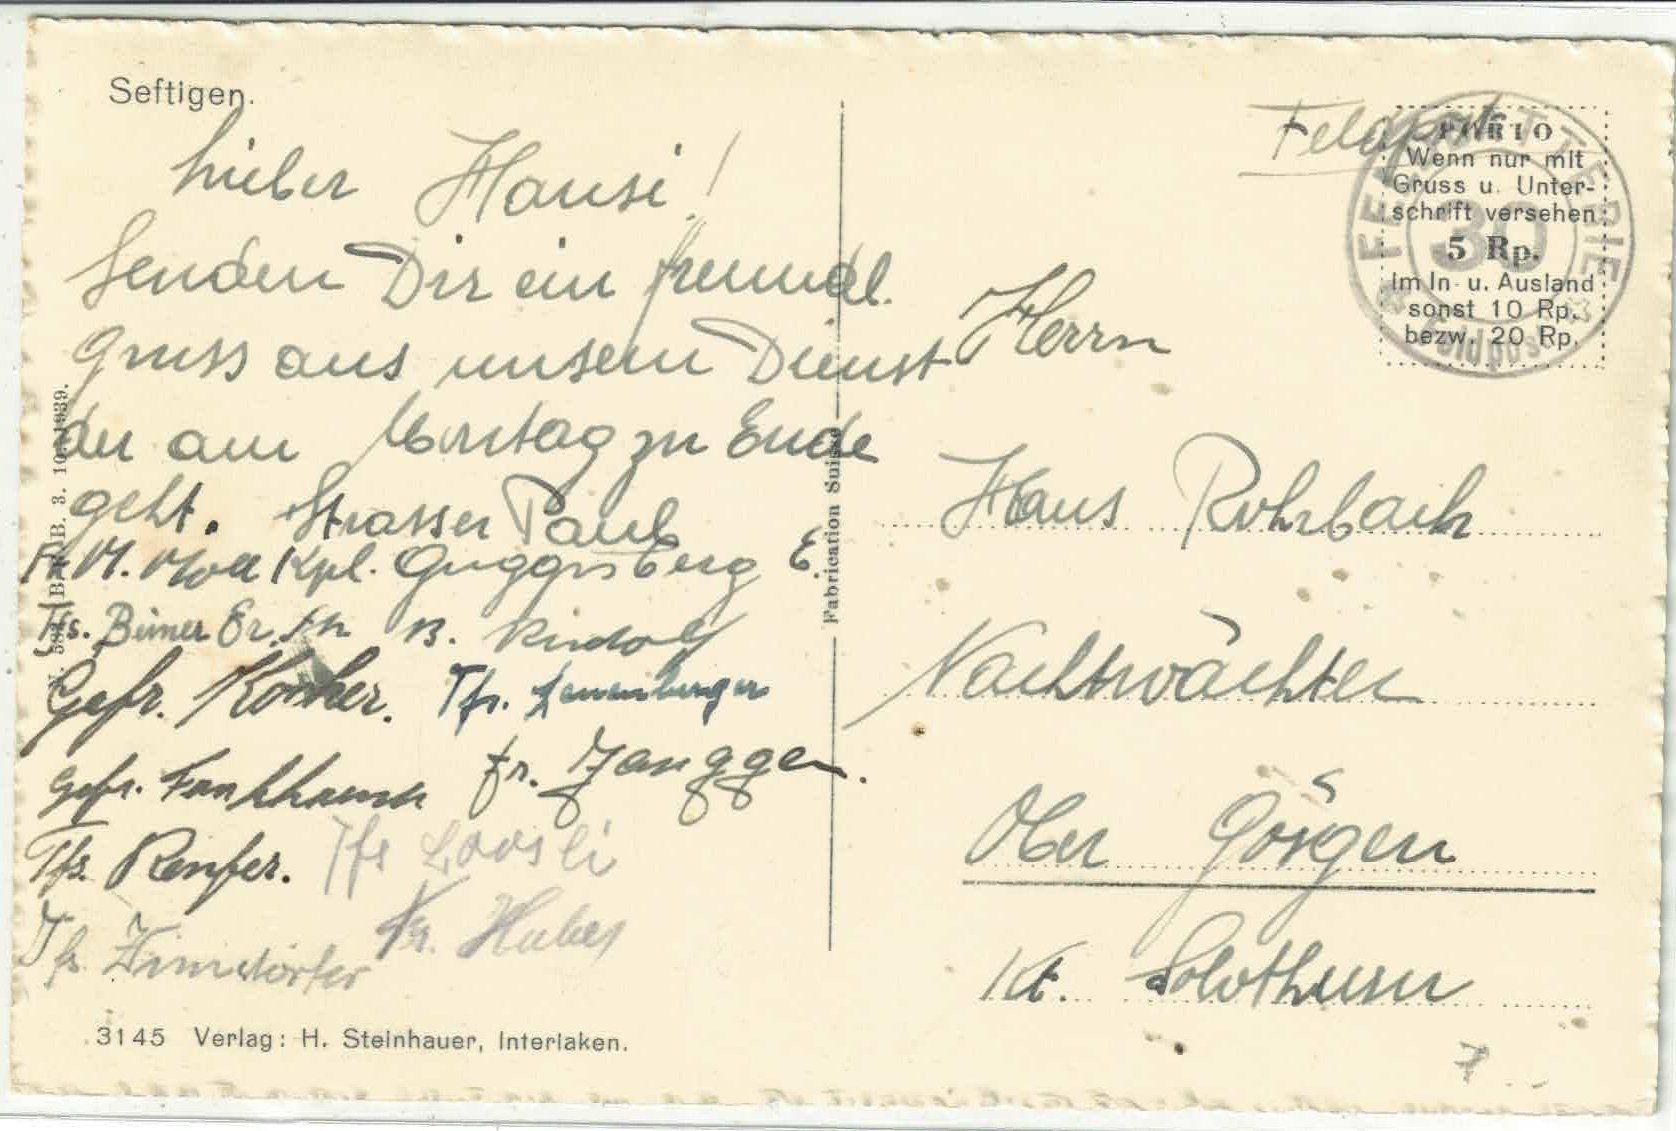 Seftigen.
Lieber Hansi!
Senden Dir ein freundl.
Gruss aus unserm Dienst
der am Montag zu Ende
geht. Strasser Paul
Kpl. Guggisberg E.
B. Rudolf
Gefr. Kocher. Tfs. Leuenberger
Gefr. Fankhauser fr. Janggen.
Tfs. Renfer. Tfs Loosli
Tfs. Fr. Huber
3145 Verlag: H. Steinhauer, Interlaken.
B. 3. 10. 1939.
Fabrication Suisse
Feldpost
PORTO
Wenn nur mit
Gruss u. Unter-
schrift versehen
5 Rp.
im In- u. Ausland
sonst 10 Rp.
bezw. 20 Rp.
30
Feldpost
Herrn
Hans Rohrbach
Nachtwächter
Ober Gösgen
Kt. Solothurn
7